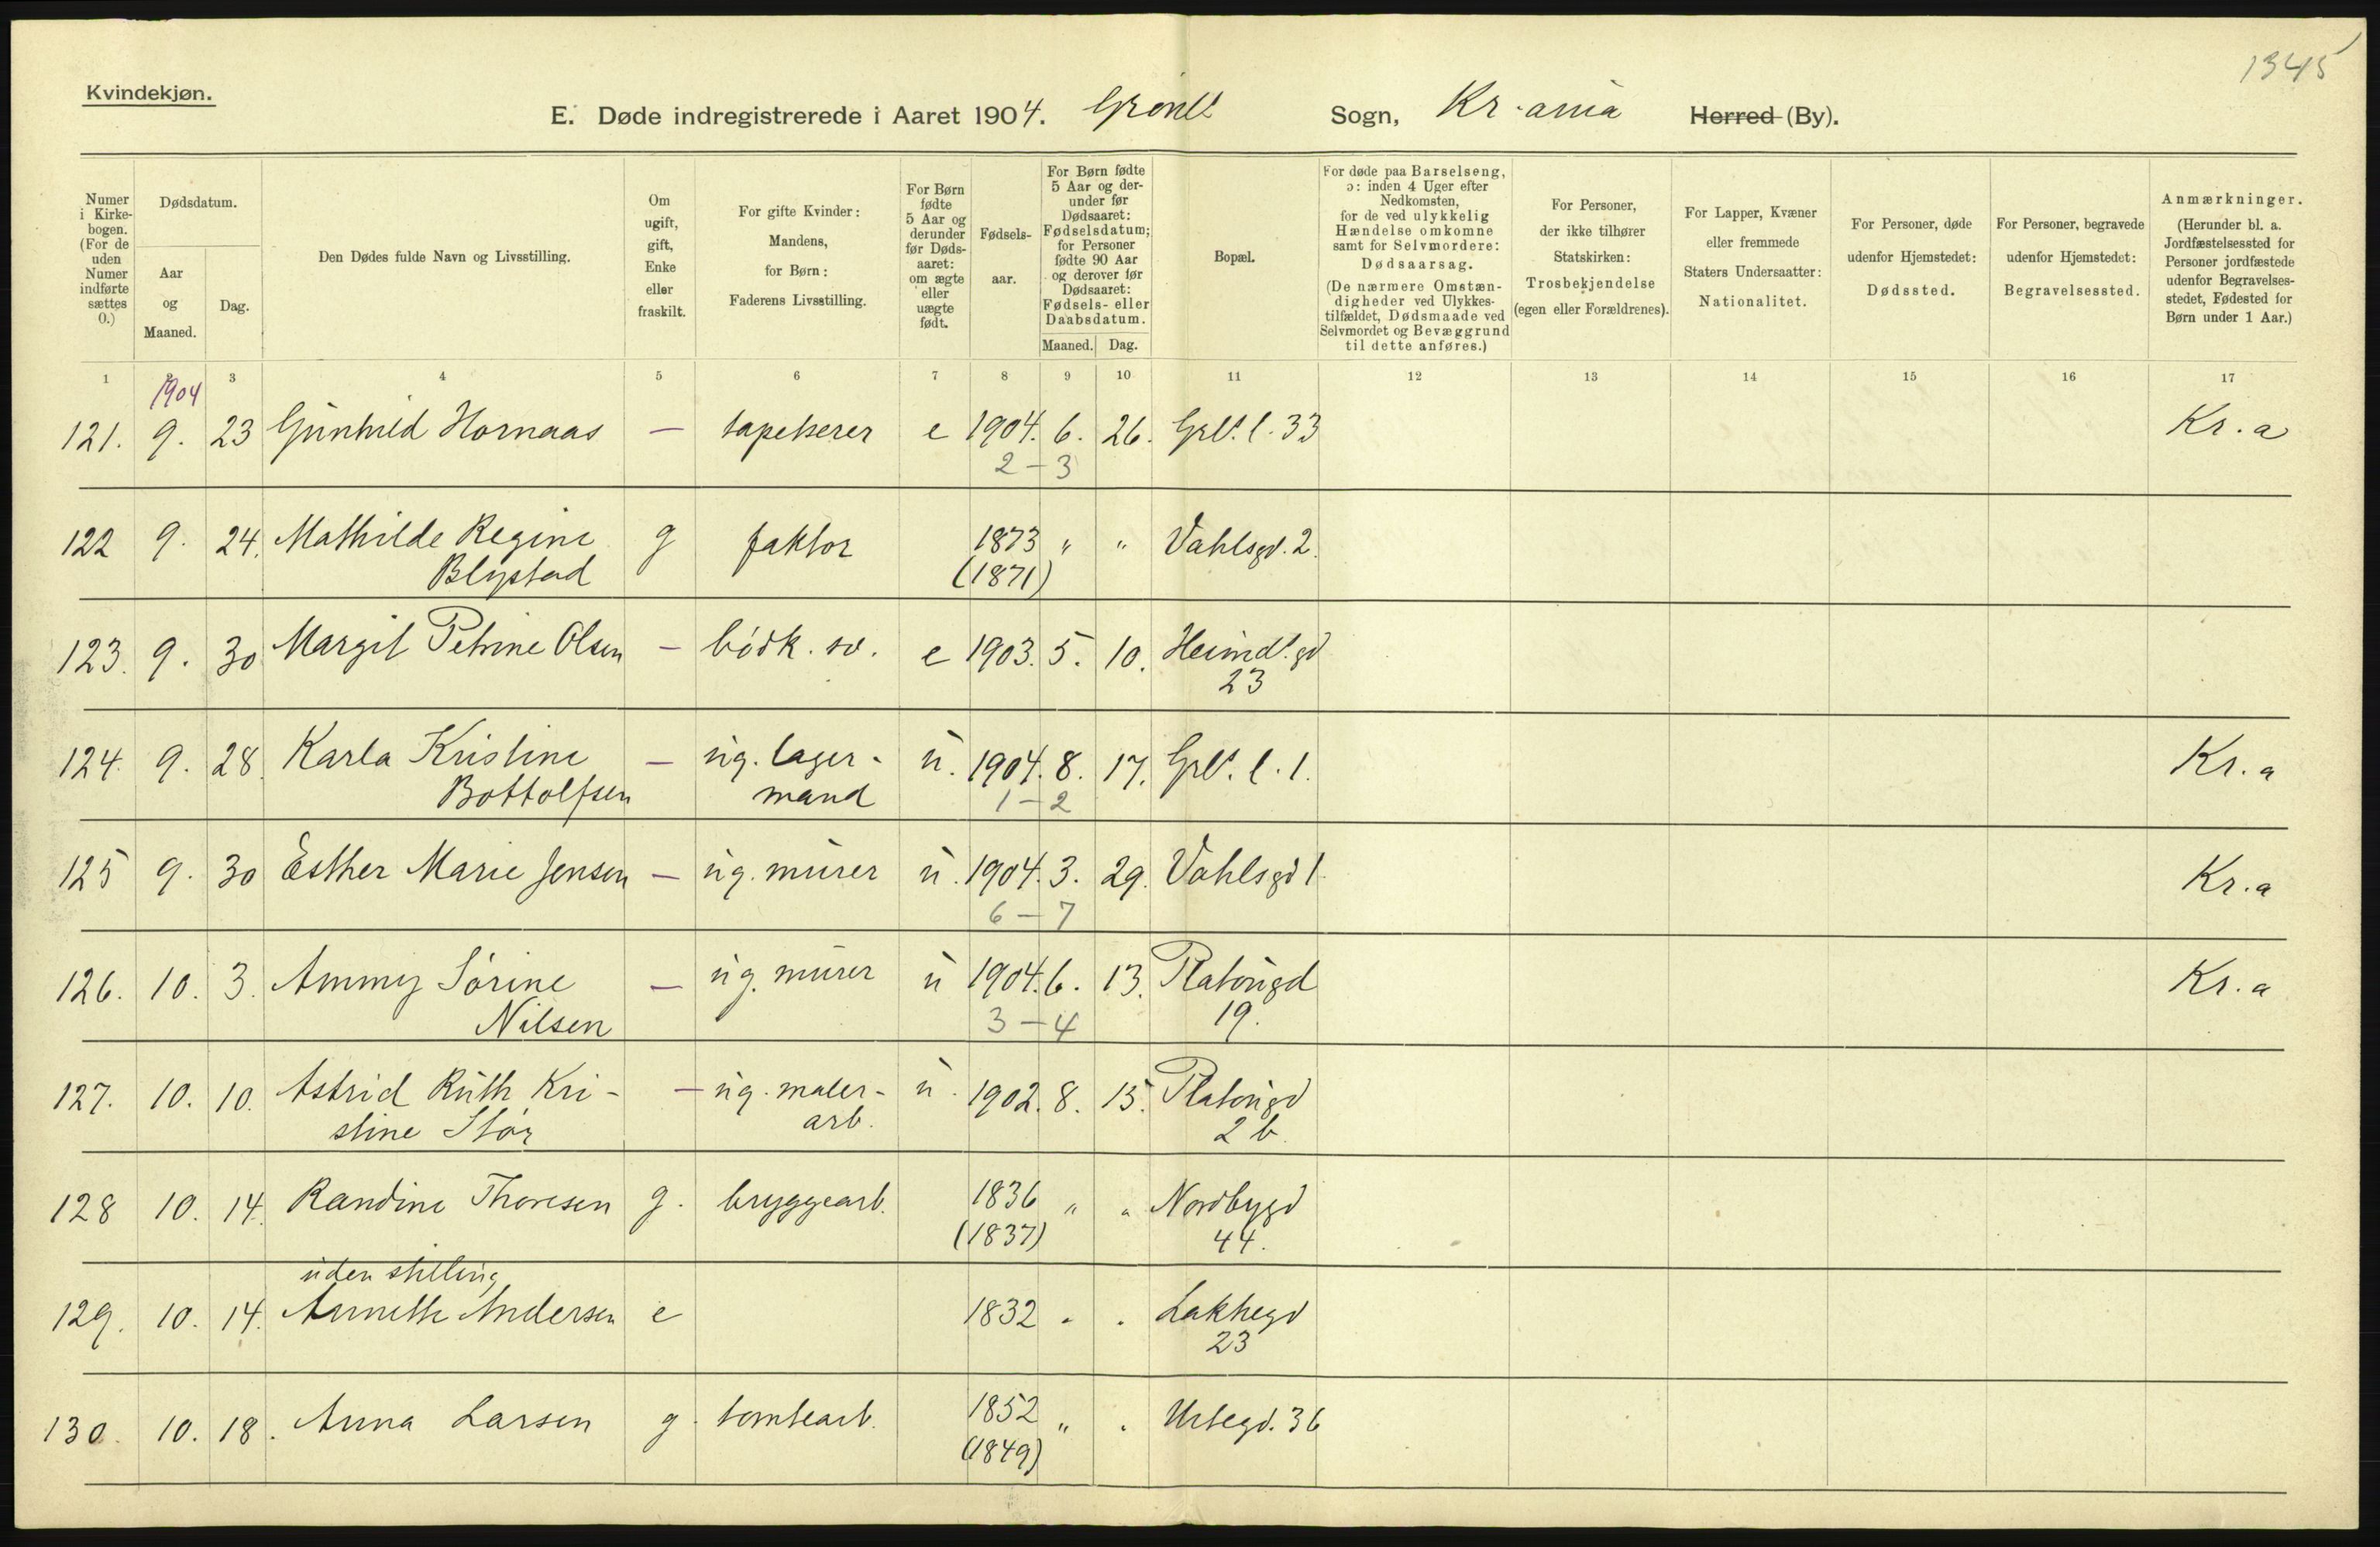 1345
Kvindekjøn.
E. Døde indregistrerede i Aaret 1904. Grønl. Sogn, Kr.ania Herred (By).
Numer i Kirkebogen. (For de uden Numer indførte sættes 0.)
Dødsdatum.
Aar og Maaned.
Dag.
Den Dødes fulde Navn og Livsstilling.
Om ugift, gift, Enke eller fraskilt.
For gifte Kvinder: Mandens, for Børn: Faderens Livsstilling.
For Børn fødte 5 Aar og derunder før Dødsaaret: om ægte eller uægte født.
Fødselsaar.
For Børn fødte 5 Aar og derunder før Dødsaaret: Fødselsdatum; for Personer fødte 90 Aar og derover før Dødsaaret: Fødsels- eller Daabsdatum.
Maaned. Dag.
Bopæl.
For døde paa Barselseng, ɔ: inden 4 Uger efter Nedkomsten, for de ved ulykkelig Hændelse omkomne samt for Selvmordere: Dødsaarsag. (De nærmere Omstændigheder ved Ulykkestilfældet, Dødsmaade ved Selvmordet og Bevæggrund til dette anføres.)
For Personer, der ikke tilhører Statskirken: Trosbekjendelse (egen eller Forældrenes).
For Lapper, Kvæner eller fremmede Staters Undersaatter: Nationalitet.
For Personer, døde udenfor Hjemstedet: Dødssted.
For Personer, begravede udenfor Hjemstedet: Begravelsessted.
Anmærkninger. (Herunder bl. a. Jordfæstelsessted for Personer jordfæstede udenfor Begravelsesstedet, Fødested for Børn under 1 Aar.)
1 2 3 4 5 6 7 8 9 10 11 12 13 14 15 16 17
1904
121. 9. 23 Gunhild Hornaas — tapetserer e 1904. 6. 26. Grl. l. 33 Kr.a
2 – 3
122 9. 24. Mathilde Regine g faktor 1873 " " Vahlsgd. 2.
Blystad (1871)
123. 9. 30 Margit Petrine Olsen — bødk. sv. e 1903. 5. 10. Heimd.gd
23
124. 9. 28. Karla Kristine — ug. lager- u. 1904. 8. 17. Grl. l. 1. Kr.a
Bottolfsen mand 1 – 2
125 9. 30 Esther Marie Jensen — ug. murer u. 1904. 3. 29. Vahlsgd 1. Kr.a
6 – 7
126. 10. 3. Ammy Sørine — ug. murer u 1904. 6. 13. Platougd Kr.a
Nilsen 3 – 4 19.
127. 10. 10. Astrid Ruth Kri- — ug. maler- u. 1902. 8. 15. Platougd
stine Stor arb. 2 b.
128 10. 14. Randine Thoresen g. bryggearb. 1836 " " Nordbygd
(1837) 44.
uden stilling
129. 10. 14. Annette Andersen e 1832 " " Lakkegd
23
130. 10. 18. Anna Larsen g. tomtearb. 1852 " " Urtegd. 36
(1849)